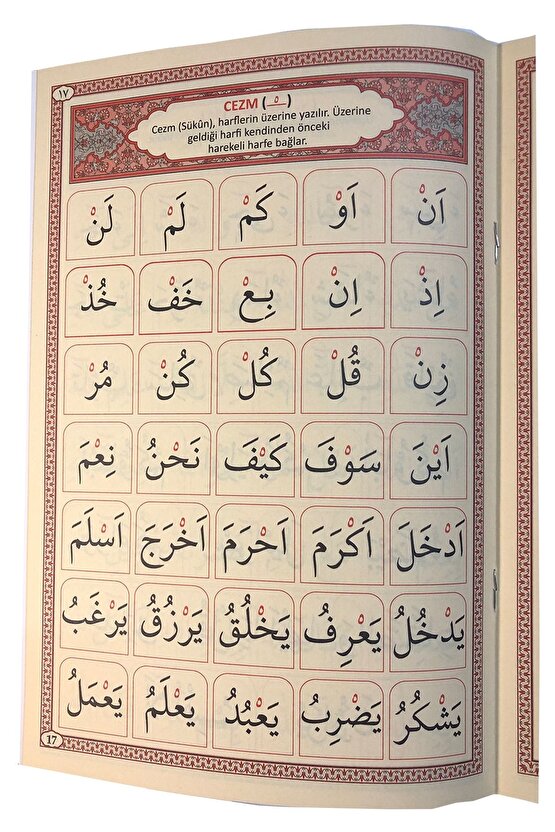 ١٧
CEZM (ـْ)
Cezm (Sükûn), harflerin üzerine yazılır. Üzerine
geldiği harfi kendinden önceki
harekeli harfe bağlar.
اَنْ اَوْ كَمْ لَمْ لَنْ
اِذْ اِنْ بِعْ خَفْ خُذْ
زِنْ قُلْ كُلْ كُنْ مُرْ
اَيْنَ سَوْفَ كَيْفَ نَحْنُ نِعْمَ
اَدْخَلَ اَكْرَمَ اَحْرَمَ اَخْرَجَ اَسْلَمَ
يَدْخُلُ يَعْرِفُ يَخْلُقُ يَرْزُقُ يَرْغَبُ
يَشْكُرُ يَضْرِبُ يَعْبُدُ يَعْلَمُ يَعْمَلُ
17